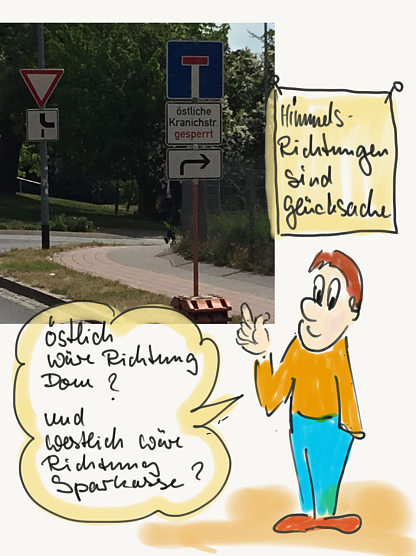 östliche
Kranichstr.
gesperrt
Himmels-
Richtungen
sind
Glücksache
östlich
wäre Richtung
Dom?
und
westlich wäre
Richtung
Sparkasse?